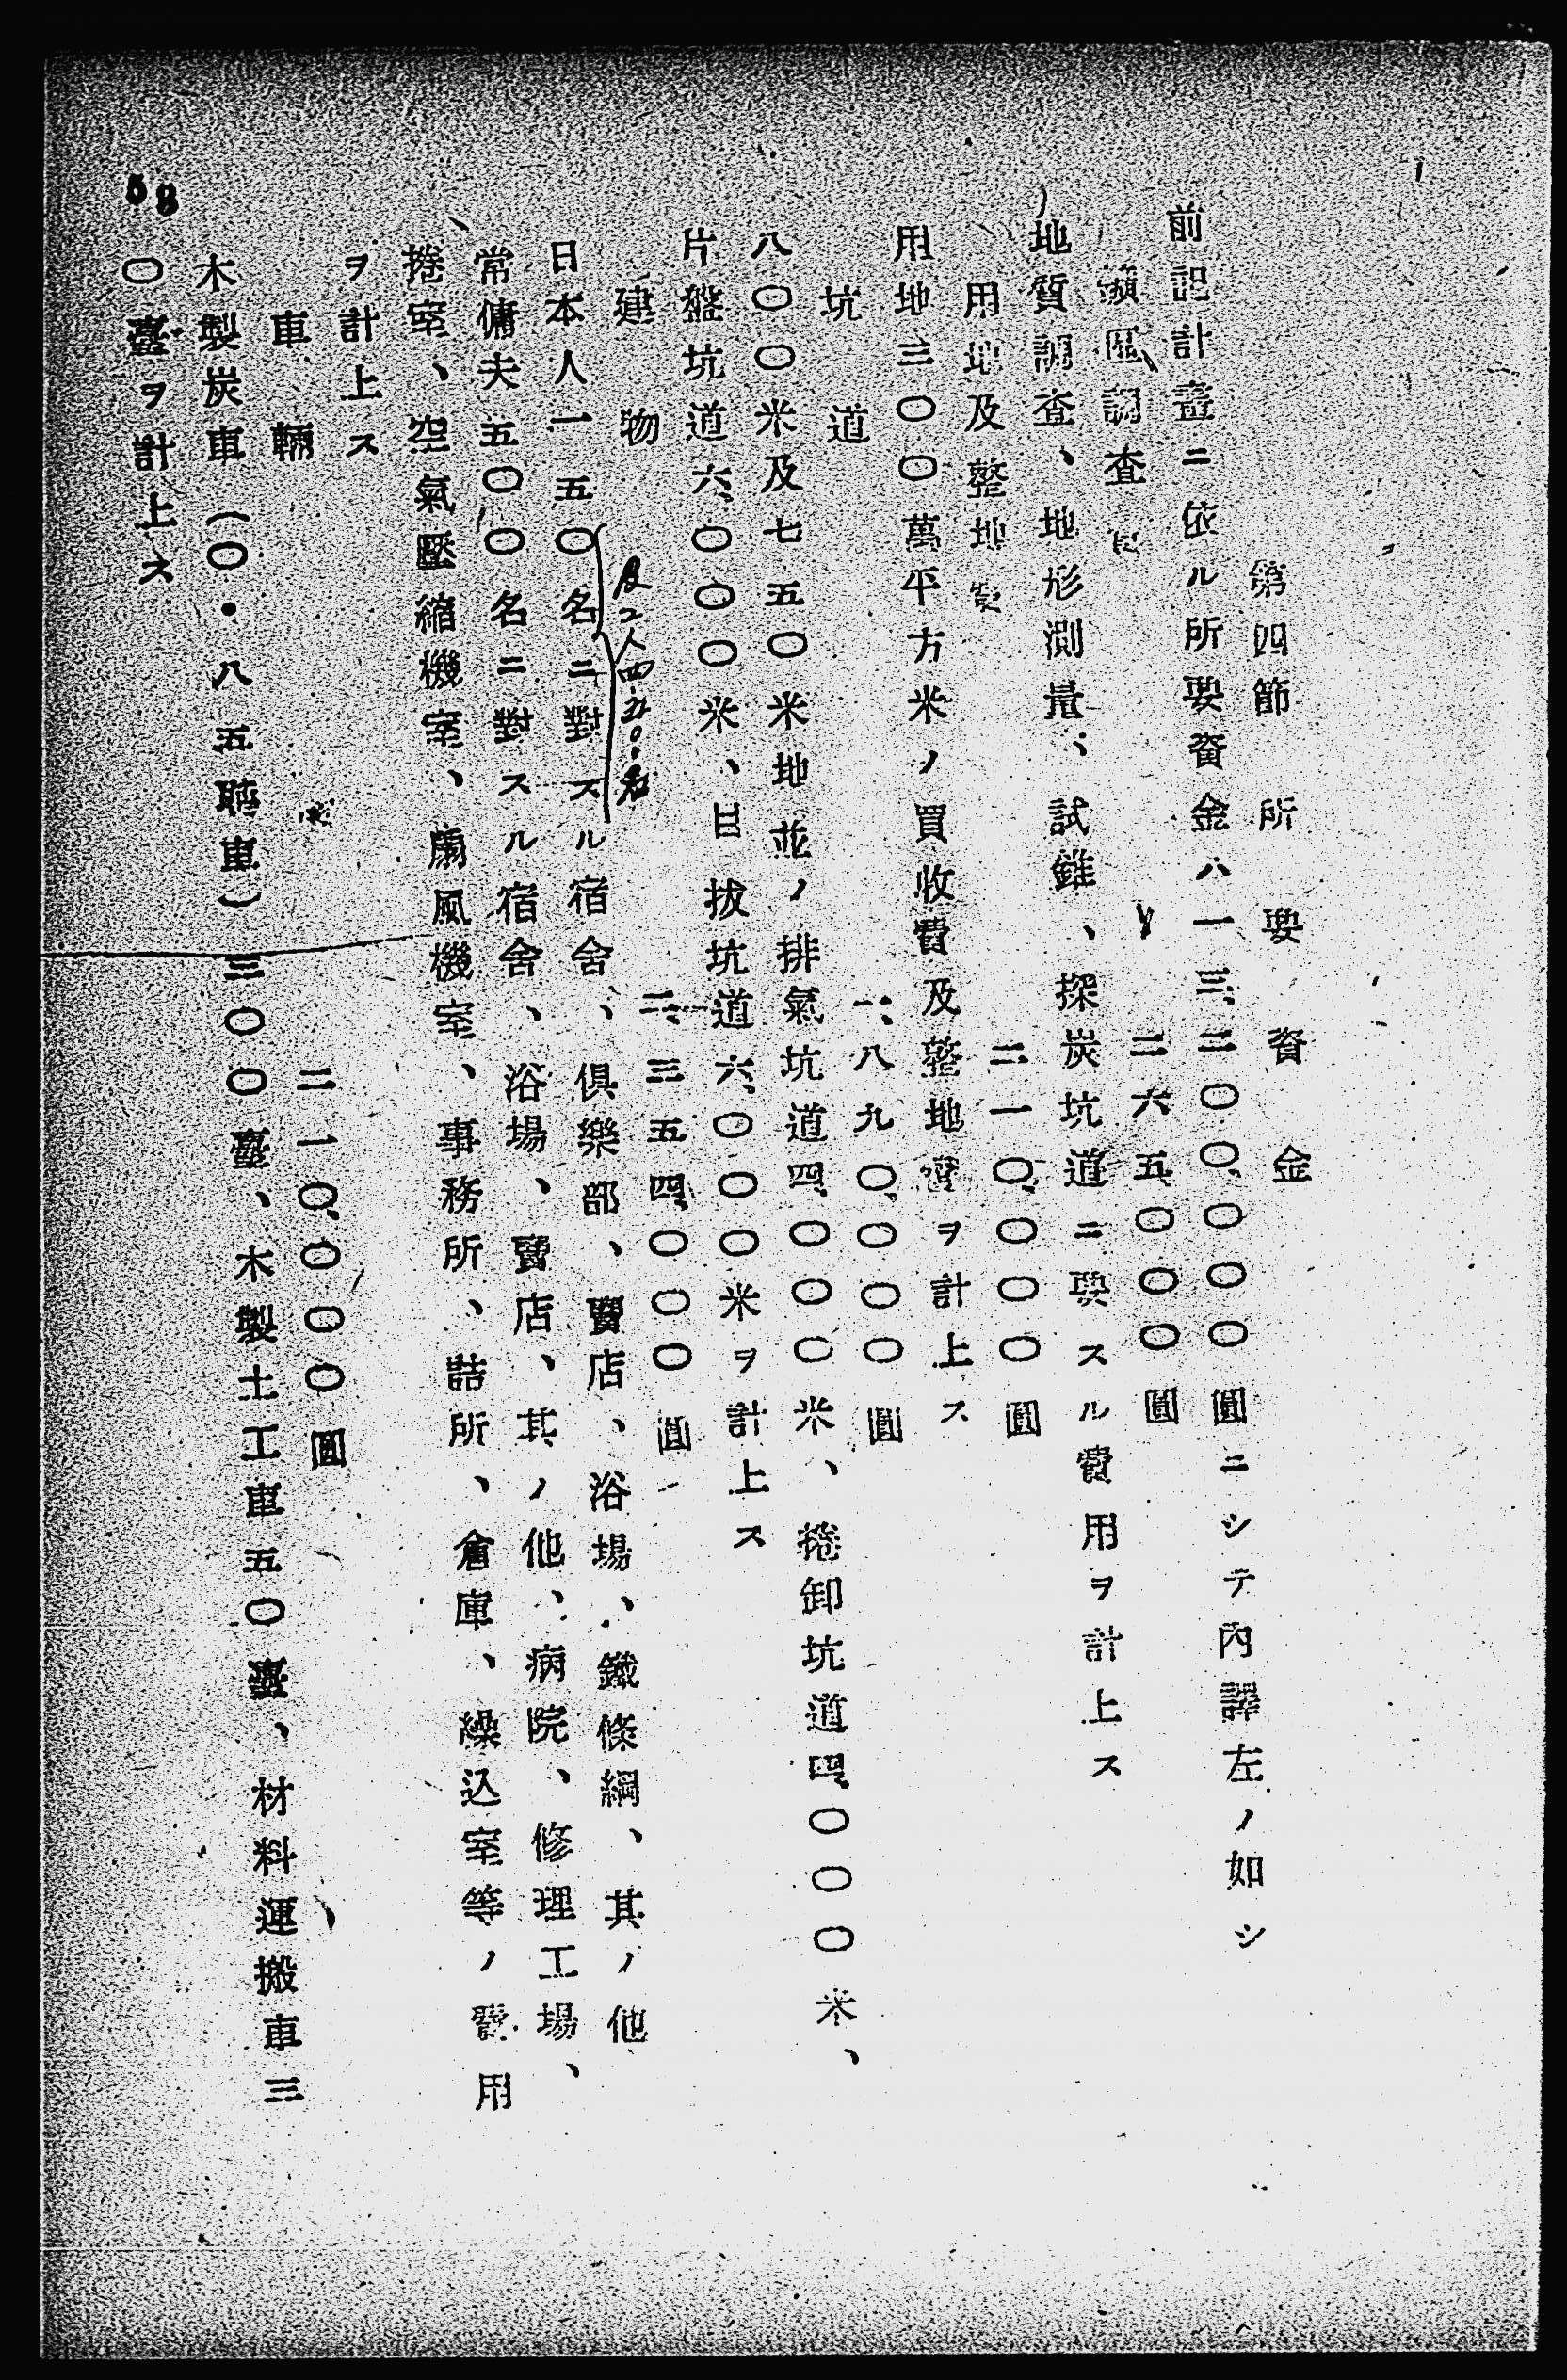 第四節 所要資金
前記計畫ニ依ル所要資金ハ一三、二〇〇、〇〇〇圓ニシテ內譯左ノ如シ
鑛區調査費 二六五、〇〇〇圓
地質調査、地形測量、試錐、探炭坑道ニ要スル費用ヲ計上ス
用地及整地費 二一〇、〇〇〇圓
用地三〇〇萬平方米ノ買收費及整地費ヲ計上ス
坑道 一、八九〇、〇〇〇圓
八〇〇米及七五〇米地並ノ排氣坑道四、〇〇〇米、捲卸坑道四、〇〇〇米、
片盤坑道六、〇〇〇米、目拔坑道六、〇〇〇米ヲ計上ス
建物 二、三五四、〇〇〇圓
日本人一五〇名ニ對スル宿舍、俱樂部、賣店、浴場、鐵條網、其ノ他
常傭夫五〇〇名ニ對スル宿舍、浴場、賣店、其ノ他、病院、修理工場、
捲室、空氣壓縮機室、扇風機室、事務所、詰所、倉庫、繰込室等ノ費用
ヲ計上ス
車輛 二一〇、〇〇〇圓
木製炭車(〇・八五瓲車)三〇〇臺、木製土工車五〇臺、材料運搬車三
〇臺ヲ計上ス
58